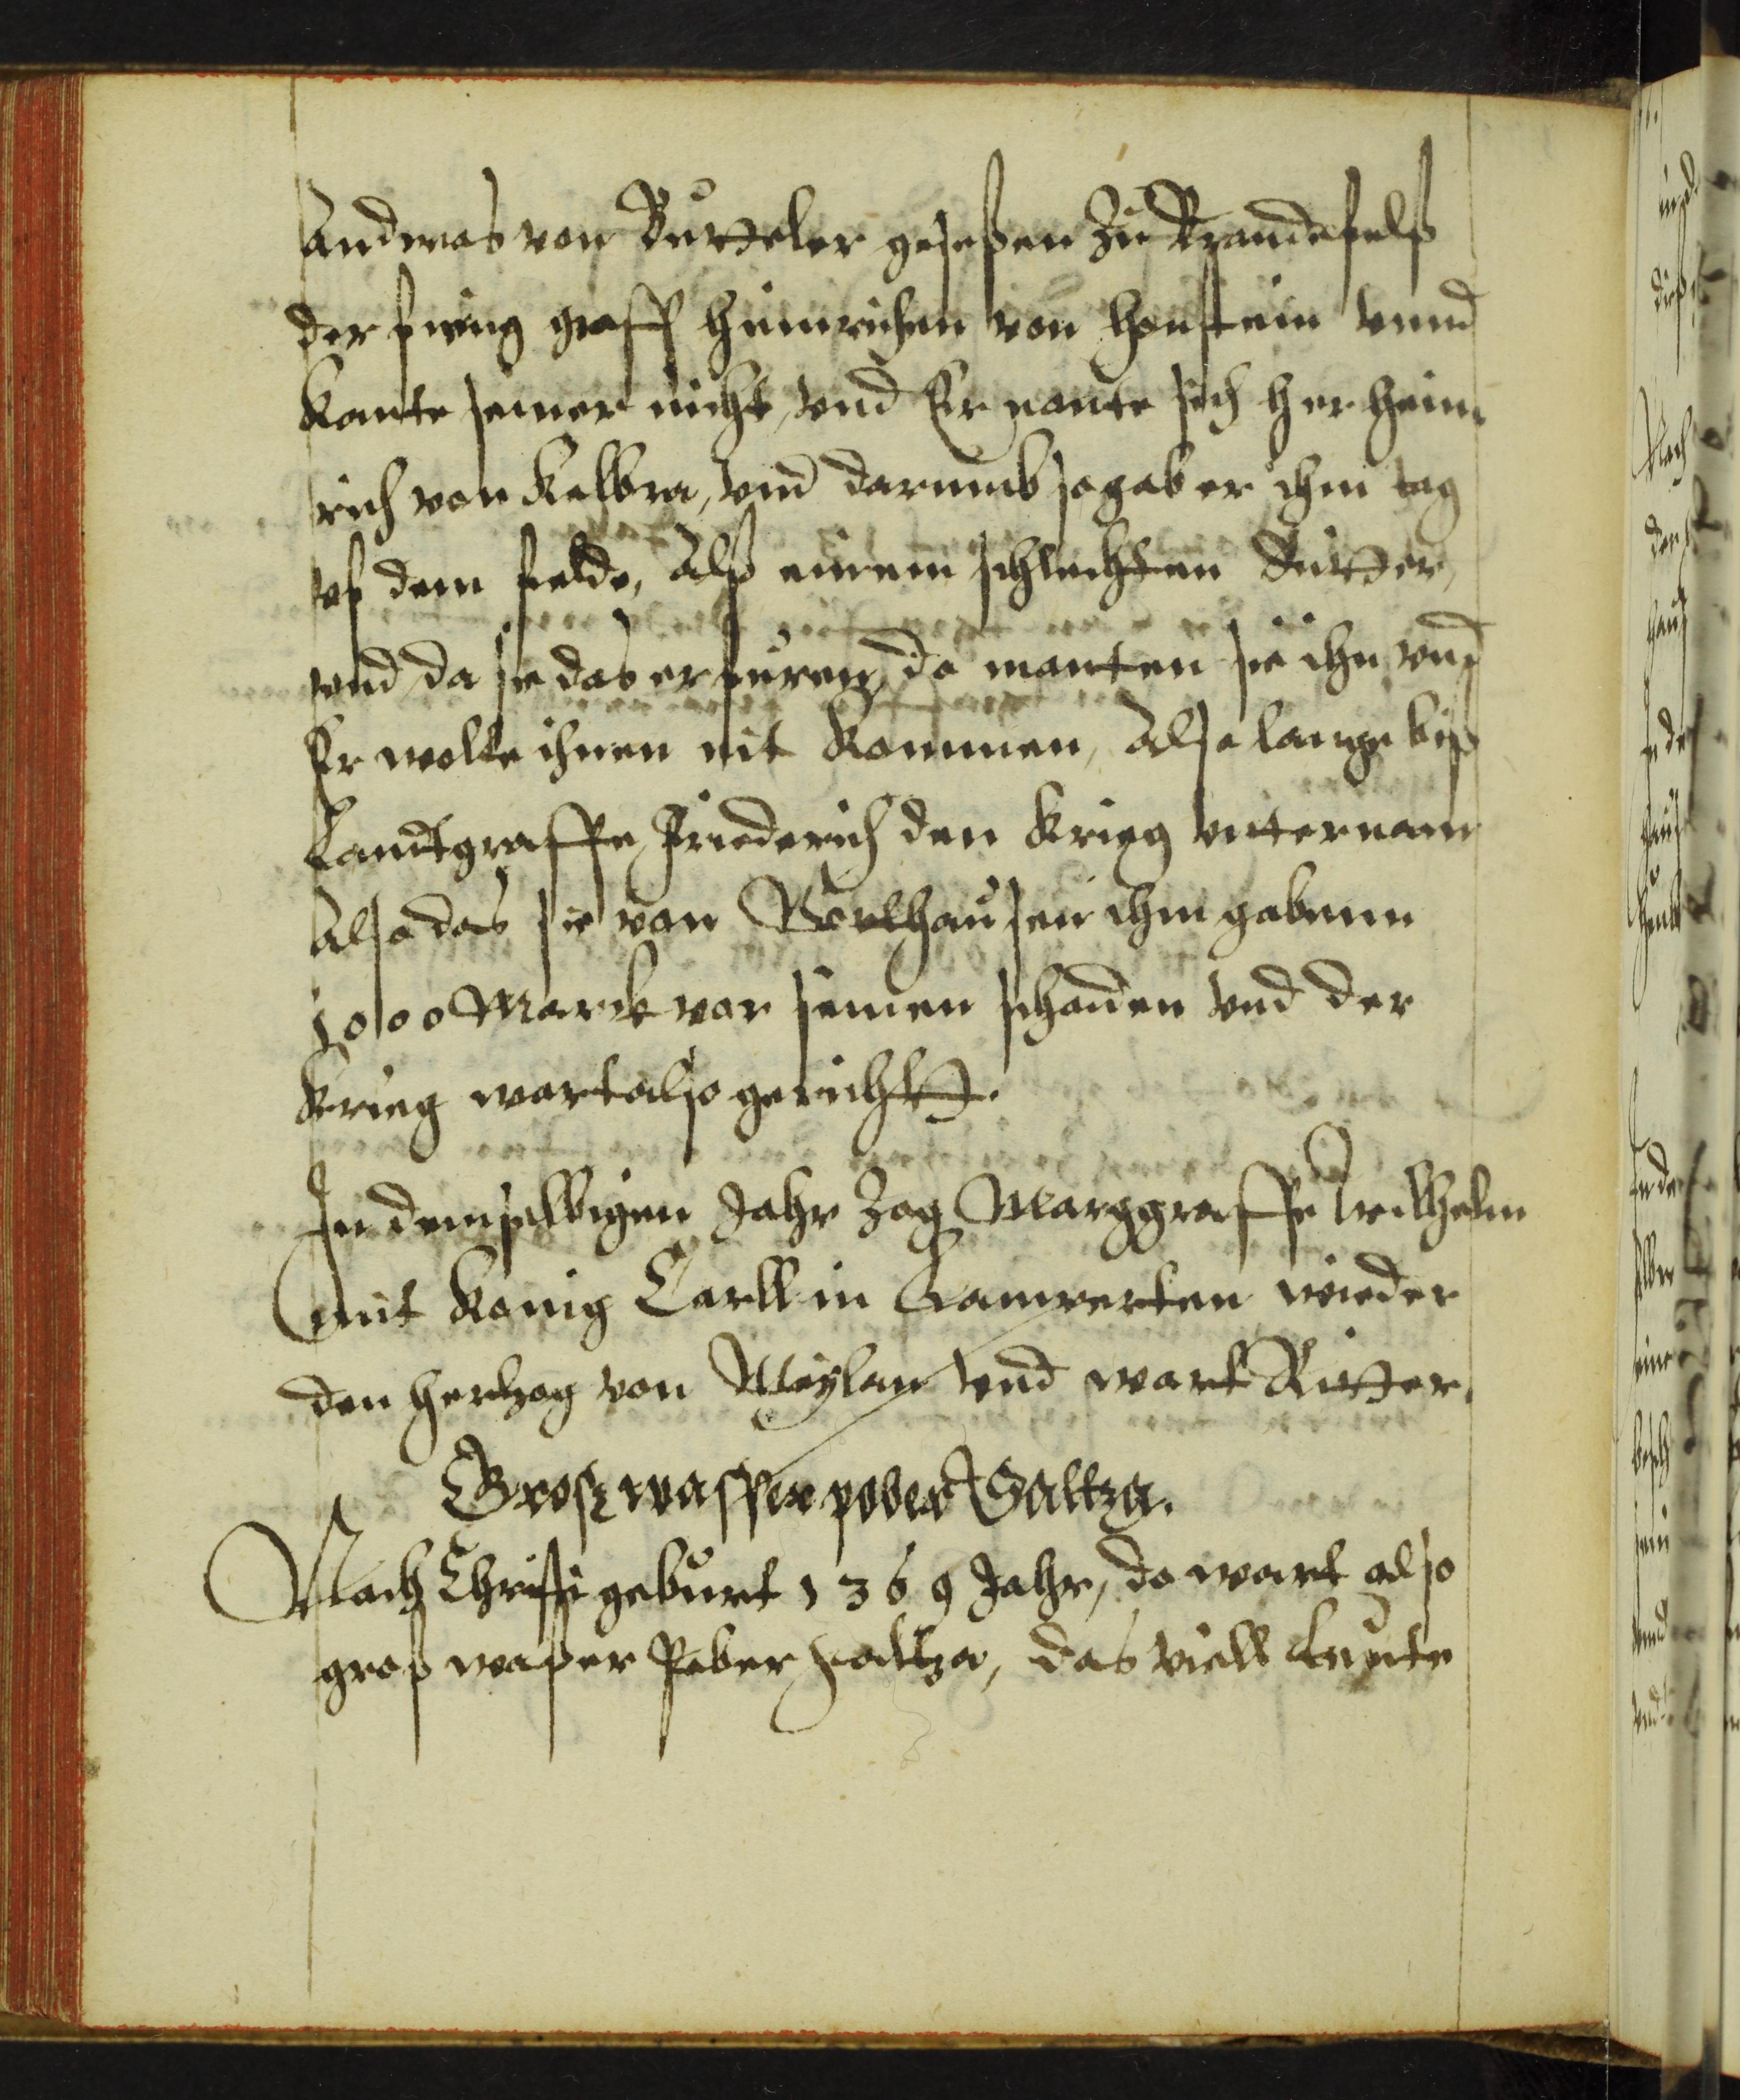 Andreas von Buttler geseßen zu Brandefelß
der fieng graff Heinrichen von Honstein vnnd
kante seiner nicht, vnd Er nante sich Her Hein-
rich von Kelbra, vnd darumb so gab er ihm tag
vf dem felde, Alß einem schlechten Ritter,
vnd da sie das erfuren, da manten sie ihn vnd
Er wolte ihnen nit kommen, Also lange biß
Landtgraffe Friederich den krieg vnternam
Also das sie von Northausen ihm gabenn
1000 Marck vor seinen schaden vnd der
krieg wart also gericht.
In demselbigen Jahr zog Marggraffe Wilhelm
mit König Carll in Lamperten wieder
den Hertzog von Meylan vnd wart Ritter.
Grosz wasser vber Saltza.
Nach Christi geburt 1369 Jahr, da wart also
groß waßer Veber Saltza, das viell Leute